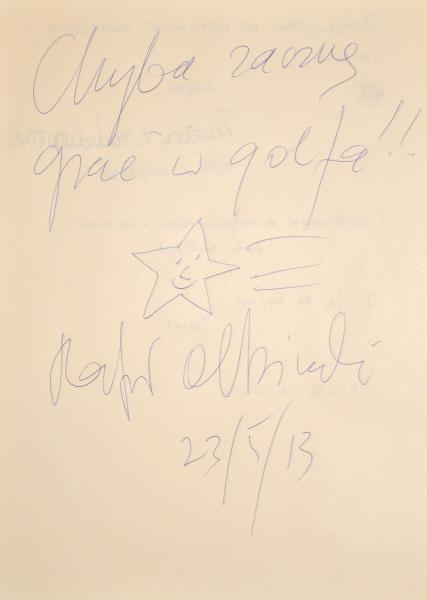 Chyba zacznę
grać w golfa!!
Rafał Olbiński
23/5/13